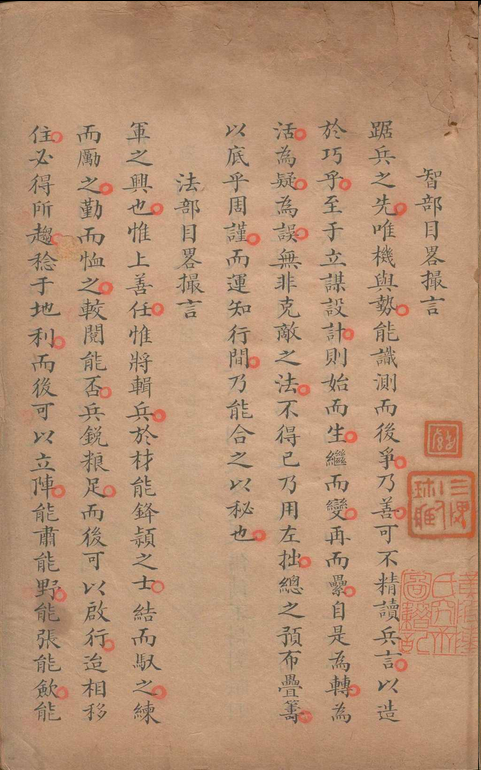 智部目畧撮言
踞兵之先唯機與勢能識測而後爭乃善可不精讀兵言以造
於巧乎至于立謀設計則始而生繼而變再而纍自是為轉為
活為疑為誤無非克敵之法不得已乃用左拙總之預布疊籌
以底乎周謹而運知行間乃能合之以秘也
法部目畧撮言
軍之興也惟上善任惟將輯兵於材能鋒頴之士結而馭之練
而厲之勤而恤之較閱能否兵銳粮足而後可以啟行迨相移
住必得所趨稔于地利而後可以立陣能肅能野能張能歛能